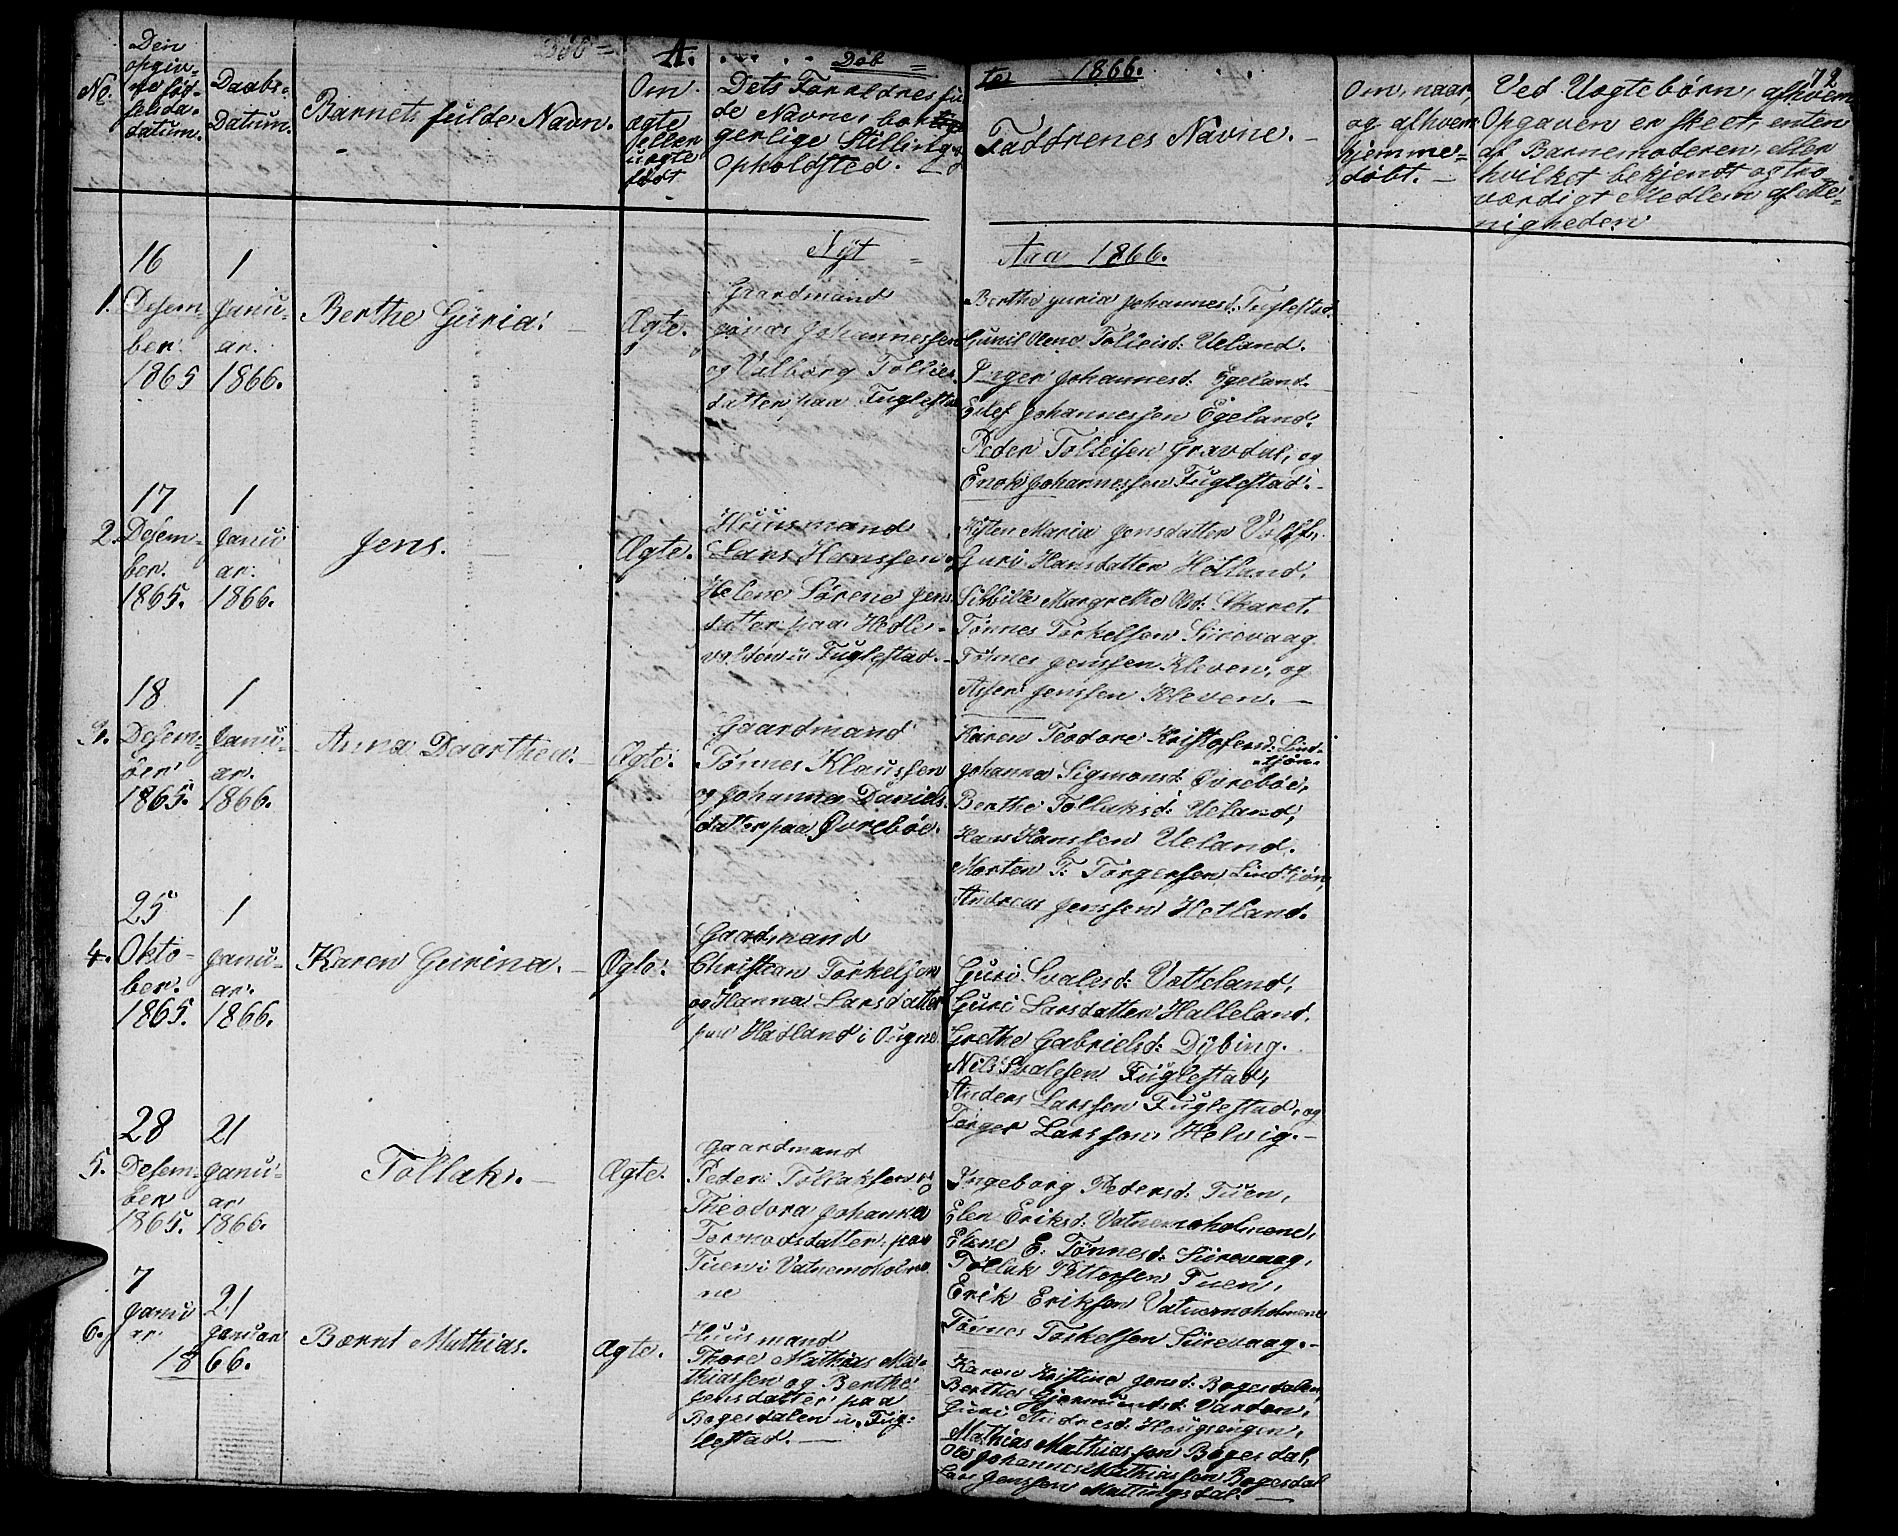 4. Døb = te 1866. 72
No.
Den
opgiv-
ne fød-
selsda-
datum.
Daabs-
Datum.
Barnets fulde Navn.
Om
ægte
eller
uægte
født
Dets Forældres ful
de Navne, bor
gerlige Stilling og
Opholdsted.
Faddrenes Navne.
Om, naar,
og af hvem
hjemme-
døbt.
Ved Uægtebørn, af hvem
Opgaven er skeet, enten
af Barnemoderen, eller
hvilket bekjendt og tro-
værdigt Medlem af Me-
nigheden
Nyt = Aar 1866.
1.
16
Desem
ber.
1865
1
Janu-
ar.
1866.
Berthe Guria.
Ægte.
Gaardmand
Jonas Johannessen
og Valborg Tollies
datter paa Fuglestad
Berthe Guria Johannesd: Fuglestad.
Gunil Olene Tolleisd: Ueland.
Inger Johannesd. Egeland.
Eilef Johannessen Egeland.
Peder Tolleisen Gravdal, og
Enok Johannessen Fuglestad.
2.
17
Desem-
ber.
1865.
1
Janu
ar.
1866.
Jens.
Ægte.
Huusmand
Lars Hanssen og
Helene Sørene Jens
datter paa Hedle-
valden u. Fuglestad.
Maria Jensdatter
Guri Hansdatter Hetland.
Sibbille Margrethe Olsd: Skaret.
Tønnes Torkelsen Sirevaag
Tønnes Jenssen Kleven, og
Asser Jenssen Kleven.
3.
18
Desem-
ber
1865.
1
Janu-
ar.
1866.
Anna Daarthea.
Ægte.
Gaardmand
Tønnes Klaussen
og Johanna Daniels
datter paa Øvrebøe.
Karen Teodore Kristofersd: Lind-
tjøn
Johanna Sigmonsd: Øvrebøe,
Berthe Tollaksd: Ueland,
Hans Hanssen Ueland.
Morten T. Torgersen Lindtjøn,
Andreas Jenssen Hetland.
4.
25
Okto-
ber.
1865.
1
Janu-
ar.
1866.
Karen Gurina.
Ægte.
Gaardmand
Christean Torkelsen
og Hanna Larsdatter
paa Hadland i Ougne
Guri Svalesd: Vatteland,
Guri Larsdatter Halleland.
Grethe Gabrielsd: Dybing.
Nils Svalesen Fuglestad,
Anders Larssen Fuglestad, og
Torger Larssen Helvig.
5.
28
Desem-
ber
1865.
21
Janu-
ar
1866.
Tollak.
Ægte.
Gaardmand
Peder Tollaksen og
Theodora Johanna
Tormodsdatter, paa
Tuen i Vatnemoholme
ne
Ingeborg Pedersd: Tuen,
Elen Eriksd: Vatnemoholmene,
Elene E. Tønnesd: Sirevaag,
Tollak Pettersen Tuen,
Erik Eriksen Vatnemoholmene
Tønnes Torkelsen Sirevaag.
6.
7
Janu
ar.
21
Januar
1866.
Bærnt Mathias.
Ægte.
Huusmand
Thore Mathias Ma-
thiassen og Berthe
Jensdatter paa
Bogesdalen u. Fug-
lestad.
Karen Kristine Jensd: Bogesdalen,
Berthe Gjermundsd: Varden,
Guri Andresd: Haugsengen,
Mathias Mathiassen Bogesdal,
Ole Johannes Mathiassen Bogesdal
Lars Jenssen Mattingsdal.